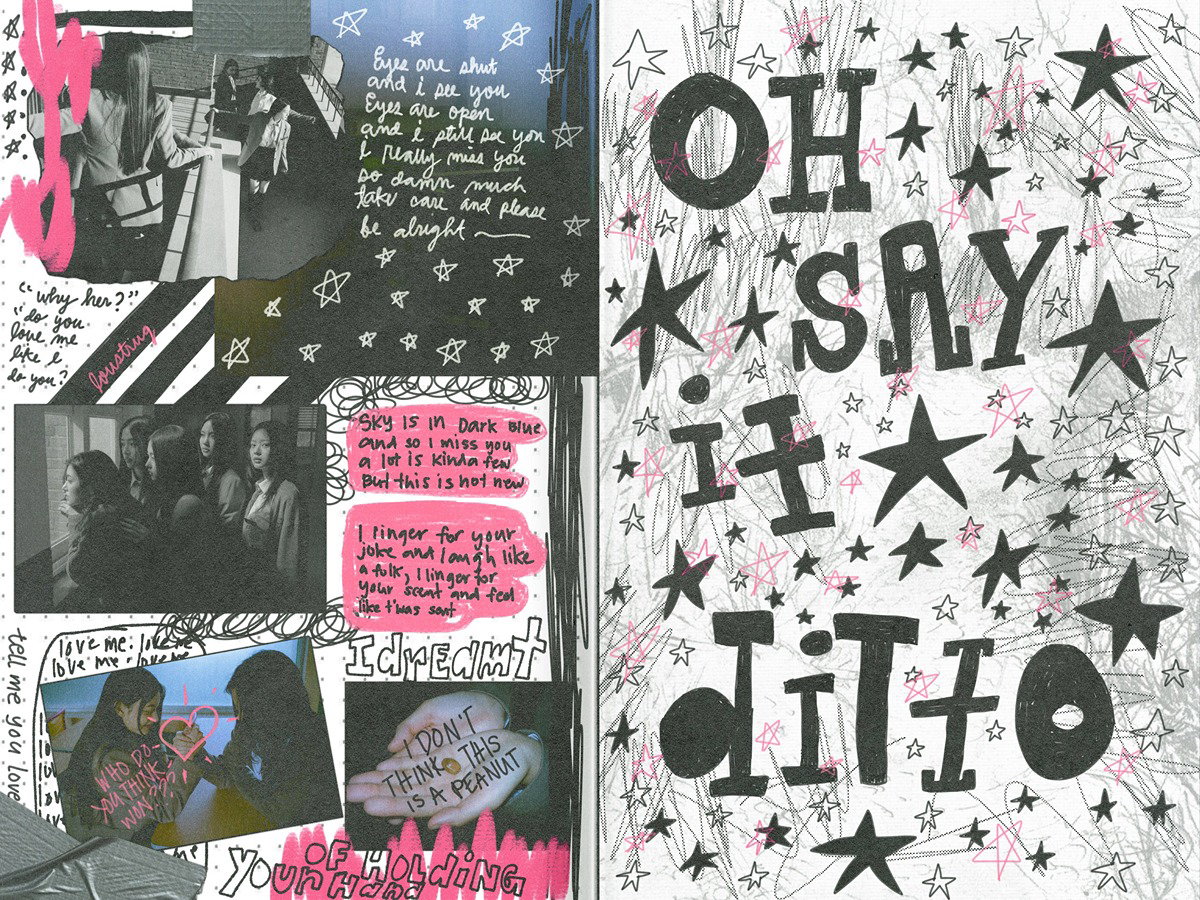 Eyes are shut
and i see you
Eyes are open
and i still see you
I really miss you
so damn much
take care and please
be alright
"why her?"
"do you
love me
like i
do you?
lovestrung
SKY IS IN DARK BLUE
and so I miss you
a lot is kinda few
But this is not new
I linger for your
joke and laugh like
a folk, I linger for
your scent and feel
like t'was sent
love me. love me
love me. love me
tell me you love
WHO DO
YOU THINK
WON???
I dreamt
I DON'T
THINK THIS
IS A PEANUT
OF HOLDING
YOUR HAND
OH
SAY
it
diTTO